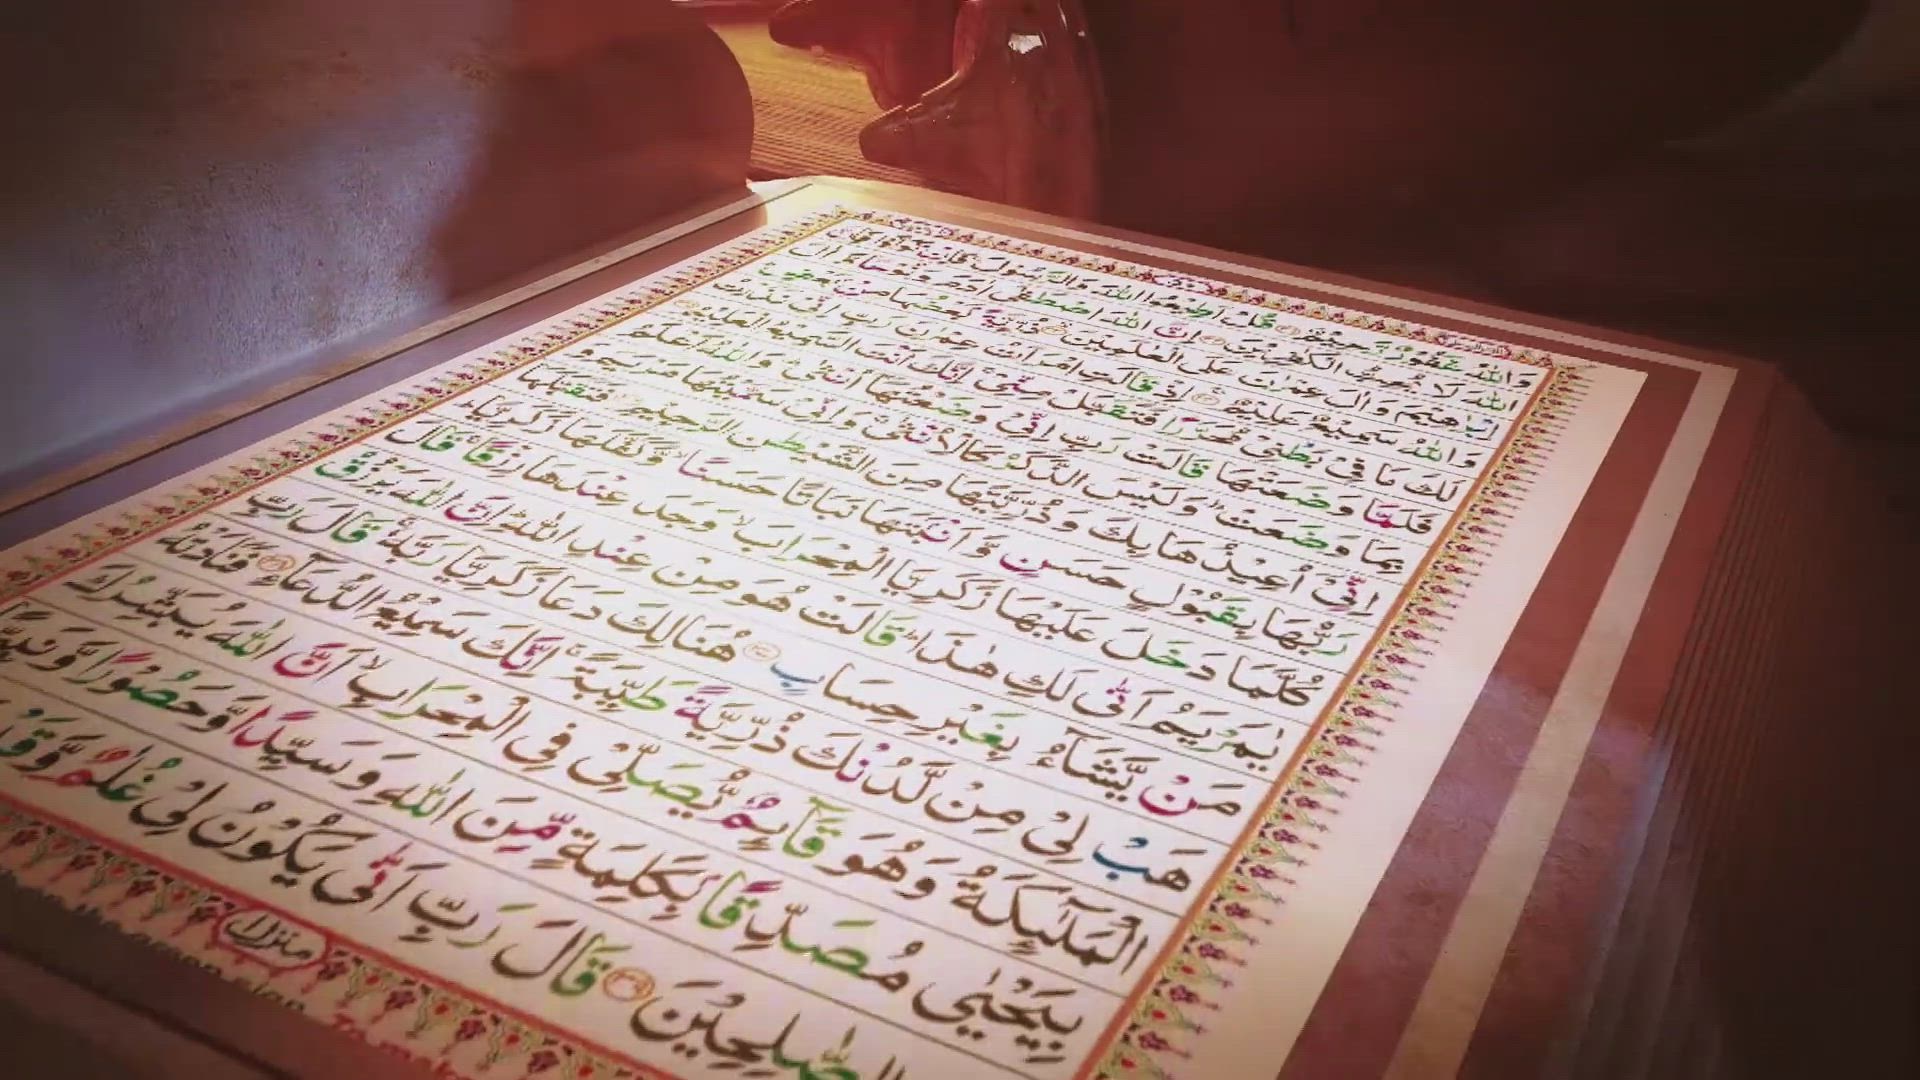 وَاللّٰهُ غَفُوْرٌ رَّحِيْمٌ ۳۱ قُلْ اَطِيْعُوا اللّٰهَ وَالرَّسُوْلَ فَاِنْ تَوَلَّوْا فَاِنَّ
اللّٰهَ لَا يُحِبُّ الْكٰفِرِيْنَ ۳۲ اِنَّ اللّٰهَ اصْطَفٰٓى اٰدَمَ وَنُوْحًا وَّاٰلَ
اِبْرٰهِيْمَ وَاٰلَ عِمْرٰنَ عَلَى الْعٰلَمِيْنَ ۳۳ ذُرِّيَّةًۢ بَعْضُهَا مِنْۢ بَعْضٍ
وَاللّٰهُ سَمِيْعٌ عَلِيْمٌ ۳۴ اِذْ قَالَتِ امْرَاَتُ عِمْرٰنَ رَبِّ اِنِّيْ نَذَرْتُ
لَكَ مَا فِيْ بَطْنِيْ مُحَرَّرًا فَتَقَبَّلْ مِنِّيْ ۚ اِنَّكَ اَنْتَ السَّمِيْعُ الْعَلِيْمُ ۳۵
فَلَمَّا وَضَعَتْهَا قَالَتْ رَبِّ اِنِّيْ وَضَعْتُهَآ اُنْثٰى ؕ وَاللّٰهُ اَعْلَمُ
بِمَا وَضَعَتْ ؕ وَلَيْسَ الذَّكَرُ كَالْاُنْثٰى ۚ وَاِنِّيْ سَمَّيْتُهَا مَرْيَمَ وَ
اِنِّيْٓ اُعِيْذُهَا بِكَ وَذُرِّيَّتَهَا مِنَ الشَّيْطٰنِ الرَّجِيْمِ ۳۶ فَتَقَبَّلَهَا
رَبُّهَا بِقَبُوْلٍ حَسَنٍ وَّاَنْۢبَتَهَا نَبَاتًا حَسَنًا ۙ وَّكَفَّلَهَا زَكَرِيَّا ؕ
كُلَّمَا دَخَلَ عَلَيْهَا زَكَرِيَّا الْمِحْرَابَ ۙ وَجَدَ عِنْدَهَا رِزْقًا ۚ قَالَ
يٰمَرْيَمُ اَنّٰى لَكِ هٰذَا ؕ قَالَتْ هُوَ مِنْ عِنْدِ اللّٰهِ ؕ اِنَّ اللّٰهَ يَرْزُقُ
مَنْ يَّشَآءُ بِغَيْرِ حِسَابٍ ۳۷ هُنَالِكَ دَعَا زَكَرِيَّا رَبَّهٗ ۚ قَالَ رَبِّ
هَبْ لِيْ مِنْ لَّدُنْكَ ذُرِّيَّةً طَيِّبَةً ۚ اِنَّكَ سَمِيْعُ الدُّعَآءِ ۳۸ فَنَادَتْهُ
الْمَلٰٓئِكَةُ وَهُوَ قَآئِمٌ يُّصَلِّيْ فِي الْمِحْرَابِ ۙ اَنَّ اللّٰهَ يُبَشِّرُكَ
بِيَحْيٰى مُصَدِّقًاۢ بِكَلِمَةٍ مِّنَ اللّٰهِ وَسَيِّدًا وَّحَصُوْرًا وَّنَبِيًّا
الصّٰلِحِيْنَ ۳۹ قَالَ رَبِّ اَنّٰى يَكُوْنُ لِيْ غُلٰمٌ وَّقَدْ
منزل ۱